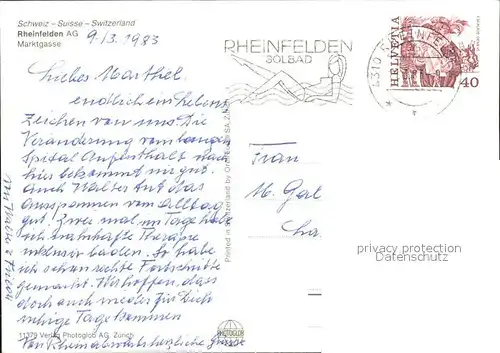 Schweiz - Suisse - Switzerland
Rheinfelden AG
Marktgasse
9.3.1983
RHEINFELDEN
SOLBAD
4310 RHEINFELDEN
HELVETIA
40
Liebes Marthel.
endlich ein Lebens
Zeichen von uns. Die
Veränderung vom langen
Spital Aufenthalt nach
hier bekommt mir gut.
Auch Walter tut das
ausspannen vom Alltag
gut. Zwei mal im Tage habe
ich
Therapie
inklusiv baden. So habe
ich schon rechte Fortschritte
gemacht. Wir hoffen, dass
doch auch wieder für Dich
ruhige Tage kommen
Von Rhein
herzliche Grüsse
Frau
M. Gal
Printed in Switzerland by
SA, Zürich
privacy protection
Datenschutz
PHOTOGLOB
11379 Verlag Photoglob AG, Zürich